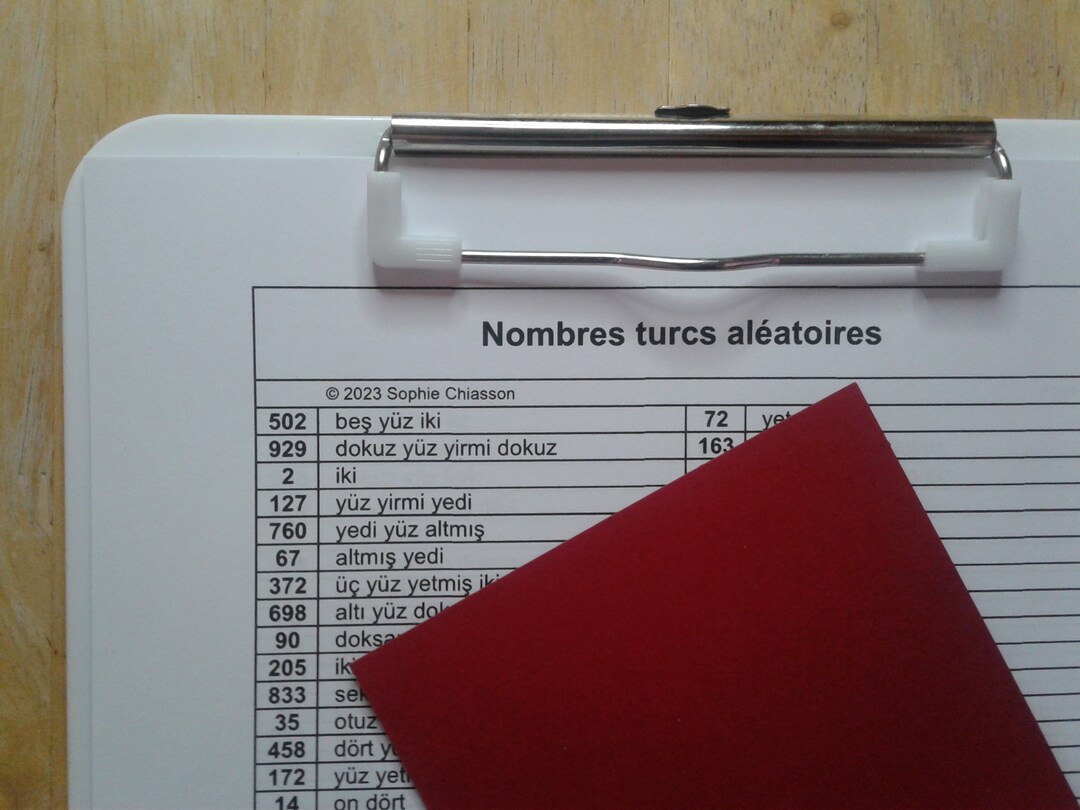 Nombres turcs aléatoires
© 2023 Sophie Chiasson
502 beş yüz iki 72
929 dokuz yüz yirmi dokuz 163
2 iki
127 yüz yirmi yedi
760 yedi yüz altmış
67 altmış yedi
372 üç yüz yetmiş
698 altı yüz
90
205
833
35 otuz
458 dört
172 yüz
14 on dört